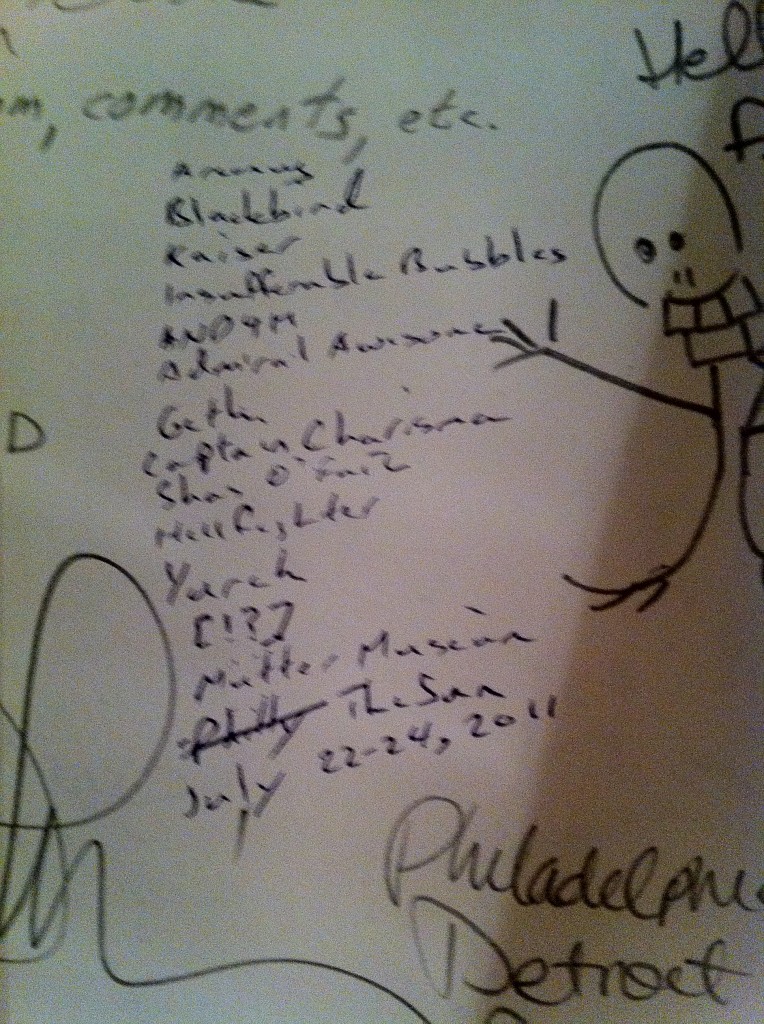 Hell
comments, etc.
Blackbird
Kaiser
Insufferable Bubbles
ANDYM
Admiral Awesome
Geth
Captain Charisma
Shas O'
Hellfighter
Yarch
[!?]
Mütter Museum
Philly The Sun
July 22-24, 2011
D
Philadelphi
Detroit